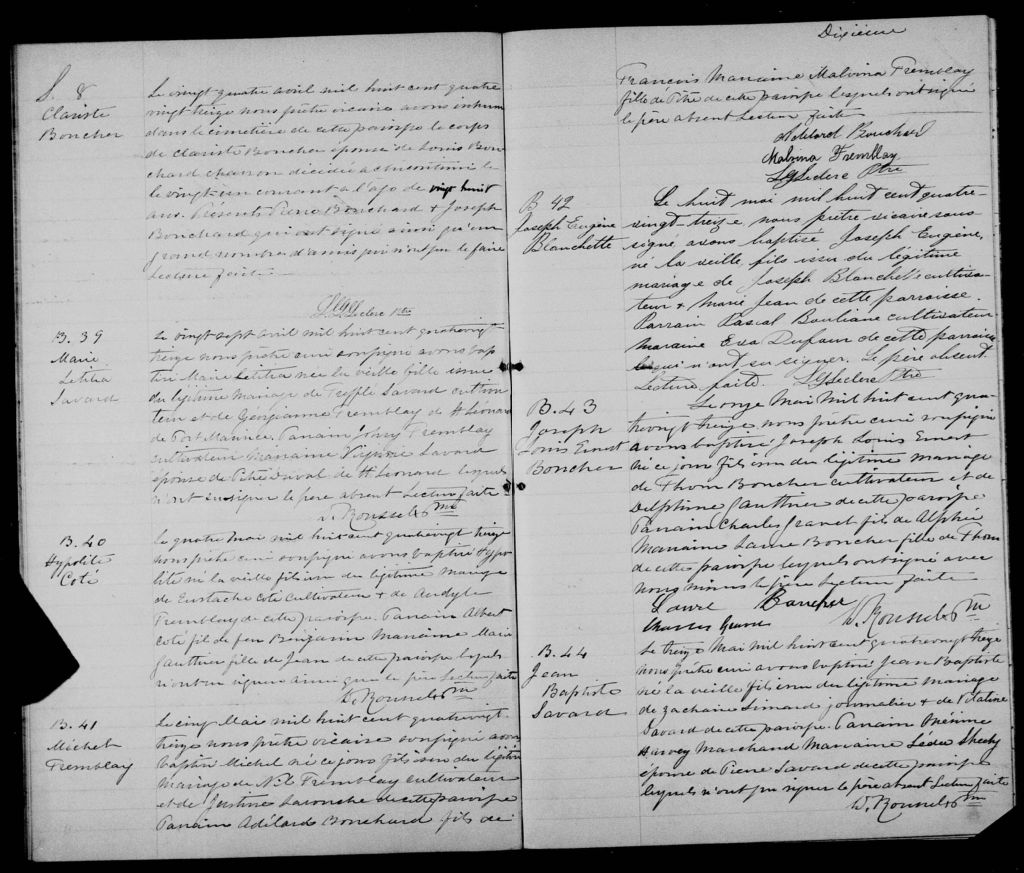 S. 8
Clariste
Boucher
Le vingt quatre avril mil huit cent quatre
vingt treize nous prêtre vicaire avons inhumé
dans le cimetière de cette paroisse le corps
de Clariste Boucher épouse de Louis Bou
chard charron décédée à
le vingt-un courant à l'age de vingt huit
ans. Présents Pierre Bouchard & Joseph
Bouchard qui ont signé ainsi qu'un
grand nombre d'amis qui n'ont pu le faire
Lecture faite
Leclerc Ptre
B. 39
Marie
Letitia
Savard
Le vingt sept avril mil huit cent quatrevingt
treize nous prêtre curé soussigné avons bap
tisé Marie Letitia née la veille fille issue
du légitime mariage de Trefflé Savard cultiva
teur et de Georgianne Tremblay de St Léonard
de Port Maurice. Parrain Johny Tremblay
cultivateur Marraine Virginie Savard
épouse de Pitre Duval de St Leonard lesquels
n'ont su signer le père absent Lecture faite
D. Roussel Ptre
B. 40
Hypolite
Coté
Le quatre mai mil huit cent quatrevingt treize
nous prêtre curé soussigné avons baptisé Hypo
lite né la veille fils issu du légitime mariage
de Eustache Coté cultivateur & de
Tremblay de cette paroisse. Parrain Albert
Coté fils de feu Benjamin Marraine Marie
Gauthier fille de Jean de cette paroisse lesquels
n'ont su signer ainsi que le père Lecture faite
D. Roussel Ptre
B. 41
Michel
Tremblay
Le cinq Mai mil huit cent quatrevingt
treize nous prêtre vicaire soussigné avons
baptisé Michel né ce jour fils issu du légitime
Mariage de Tremblay cultivateur
et de Justine Larouche de cette paroisse
Parrain Adélard Bouchard fils de
Dixième
François Marraine Malvina Tremblay
fille de Pitre de cette paroisse lesquels ont signé
le père absent Lecture faite
Adélard Bouchard
Malvina Tremblay
Leclerc Ptre
B 42
Joseph Eugène
Blanchette
Le huit mai mil huit cent quatre-
vingt-treize, nous prêtre vicaire sous
signé avons baptisé Joseph-Eugène,
né la veille, fils issu du légitime
mariage de Joseph Blanchette cultiva-
teur & Marie Jean de cette parraisse.
Parrain Pascal Bouliane cultivateur
maraine Eva Dufour de cette parraisse
qui n'ont su signer. Le père absent.
Lecture faite. Leclerc Ptre
B. 43
Joseph
Louis Ernest
Boucher
Le onze Mai Mil huit cent qua-
trevingt treize, nous prêtre curé soussigné
avons baptisé Joseph Louis Ernest
né ce jour fils issu du légitime mariage
de Thom Boucher cultivateur et de
Delphine Gauthier de cette paroisse
Parrain Charles Gravel fils de Alphée
Marraine Laure Boucher fille de Thom
de cette paroisse lesquels ont signé avec
nous moins le père Lecture faite
Laure Boucher
Charles Gravel D. Roussel Ptre
B. 44
Jean
Baptiste
Savard
Le treize Mai mil huit cent quatrevingt treize
nous prêtre curé avons baptisé Jean Baptiste
né la veille fils issu du légitime mariage
de Zachaire Simard journalier & de Vitaline
Savard de cette paroisse. Parrain Onésime
Harvey Marchand Marraine Léda Sheehy
épouse de Pierre Savard de cette paroisse
lesquels n'ont pu signer le père absent Lecture faite
D. Roussel Ptre